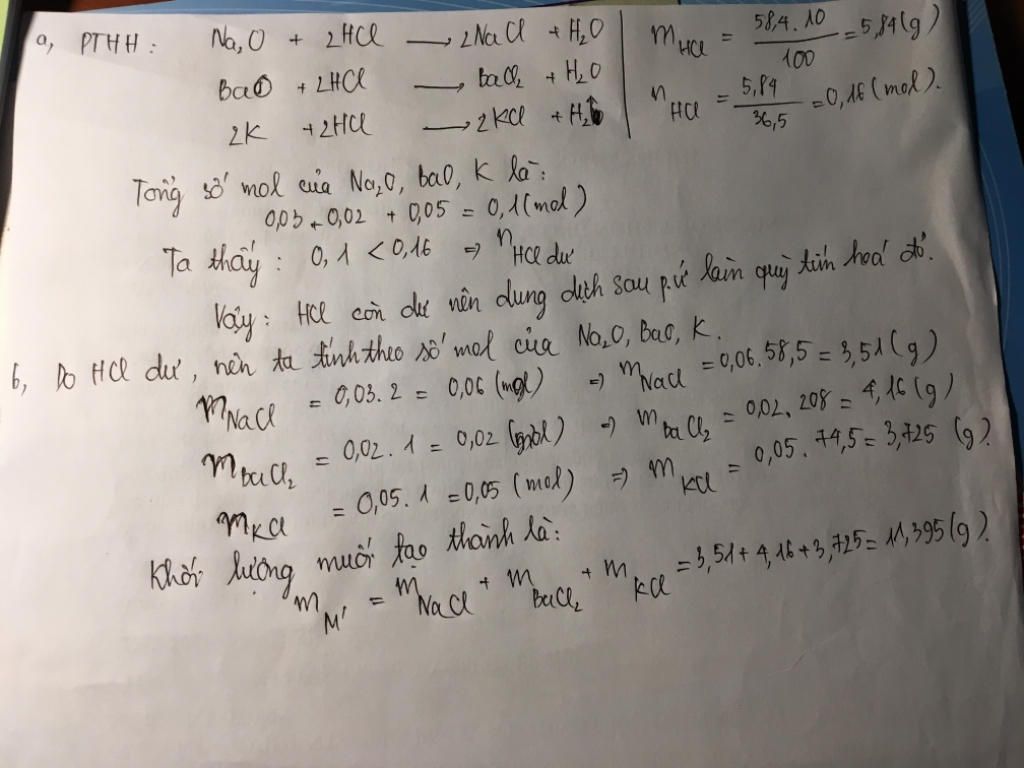 a, PTHH: Na₂O + 2HCl → 2NaCl + H₂O
BaO + 2HCl → BaCl₂ + H₂O
2K + 2HCl → 2KCl + H₂↑
m HCl = 58,4.10/100 = 5,84(g)
n HCl = 5,84/36,5 = 0,16(mol).
Tổng số mol của Na₂O, BaO, K là:
0,03 + 0,02 + 0,05 = 0,1(mol)
Ta thấy: 0,1 < 0,16 ⇒ n HCl dư
Vậy: HCl còn dư nên dung dịch sau pứ làm quỳ tím hoá đỏ.
b, Do HCl dư, nên ta tính theo số mol của Na₂O, BaO, K.
m NaCl = 0,03.2 = 0,06 (mol) ⇒ m NaCl = 0,06.58,5 = 3,51(g)
m BaCl₂ = 0,02.1 = 0,02 (mol) ⇒ m BaCl₂ = 0,02.208 = 4,16(g)
m KCl = 0,05.1 = 0,05 (mol) ⇒ m KCl = 0,05.74,5 = 3,725 (g).
Khối lượng muối tạo thành là:
m M' = m NaCl + m BaCl₂ + m KCl = 3,51 + 4,16 + 3,725 = 11,395(g).